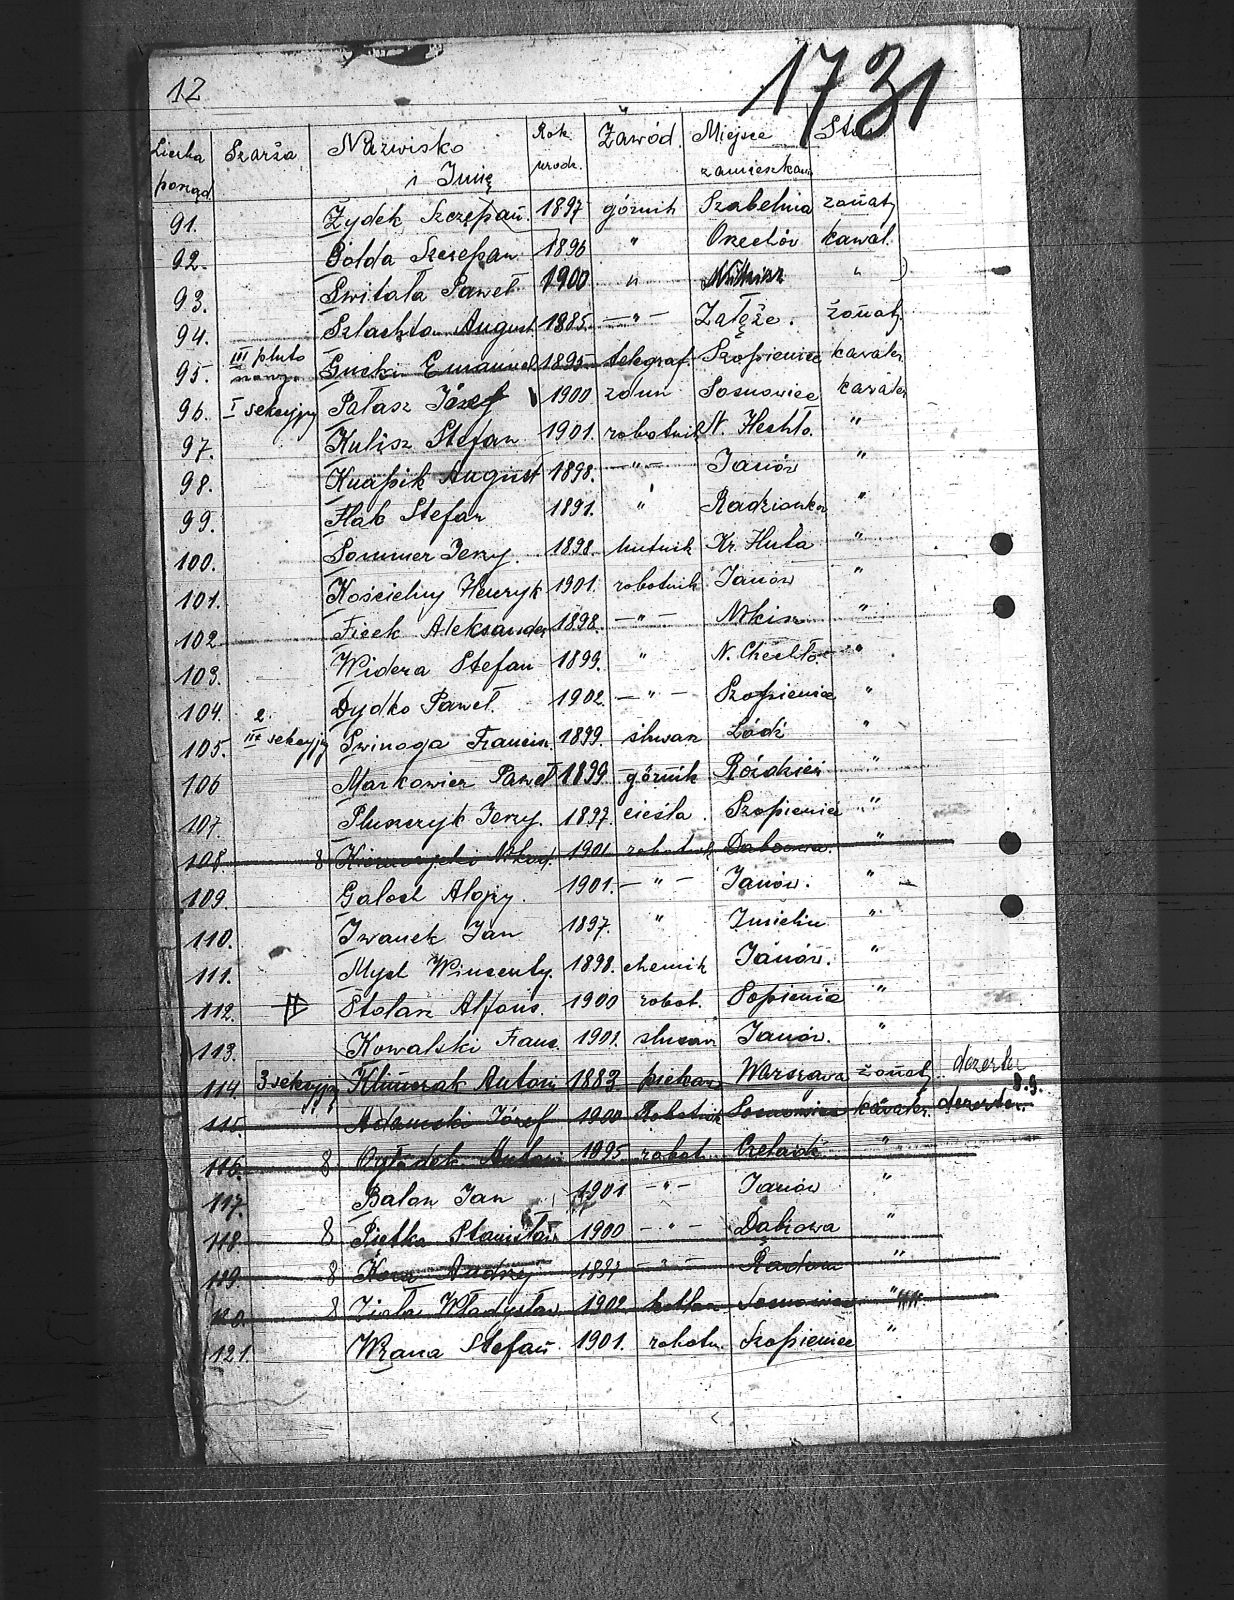 12
1731
Liczba porząd. Szarża Nazwisko i Imię Rok urodz. Zawód Miejsce zamieszkan. Sta
91. Żydek Szczepan. 1897 górnik Szabelnia żonaty
92. Gołda Szczepan 1896 " Orzechów kawal.
93. Świtała Paweł 1900 " "
94. Szlachta August 1885 — " — Załęże. żonaty
95. III pluto nowy Gucki Emanuel 1895 telegraf. Szopienice kawaler
96. I sekcyjny Pałasz Józef 1900 zdun Sosnowiec kawaler
97. Kulisz Stefan 1901. robotnik N. Hechło. "
98. Knapik August 1898. — " — Janów "
99. Hab Stefan 1891. " Radzionka "
100. Sommer Jerzy. 1898. hutnik Kr. Huta "
101. Kościelny Henryk 1901. robotnik Janów "
102 Ficek Aleksander 1898. — " — Nikisz "
103. Widera Stefan 1899. " N. Chechło. "
104. Dydko Paweł. 1902. — " — Szopienice "
105. 2. III sekcyjny Swinoga Francisz. 1899. ślusarz Łódź "
106 Markowicz Paweł 1899 górnik Roździeń "
107 Pluszczyk Jerzy. 1897. cieśla. Szopienice "
108. 8 1901 robotnik "
109. Galoch Alojzy. 1901. — " — Janów. "
110. Iwanek Jan 1897. " Imielin "
111. Mycl Wincenty. 1898. chemik Janów. "
112. Stolarz Alfons. 1900 robot. Sopienice "
113. Kowalski Franc. 1901. ślusarz Janów. "
114. 3 sekcyjny Klimczak Antoni 1883 piekarz Warszawa żonaty dezerter
115. Adamski Józef 1900 Robotnik Sosnowiec kawaler dezerter
116. 8 Ogłodek Antoni 1895 robot. Czeladź "
117. Balon Jan 1901 — " — Janów "
118. 8 Pietka Stanisław 1900 — " — Dabrowa "
119. 8 Andrzej — " — Radom "
120. 8 Zioła Władysław 1902 kotlarz Sosnowiec "
121. Wrana Stefan 1901. robotn. Szopienice "